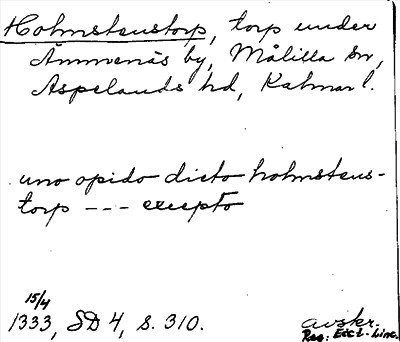 Holmstenstorp, torp under
Ämmenäs by, Målilla sn,
Aspelands hd, Kalmar l.
uno opido dicto holmstens-
torp --- excepto
15/4
1333, SD 4, S. 310.
avskr.
Reg. Eccl. Linc.